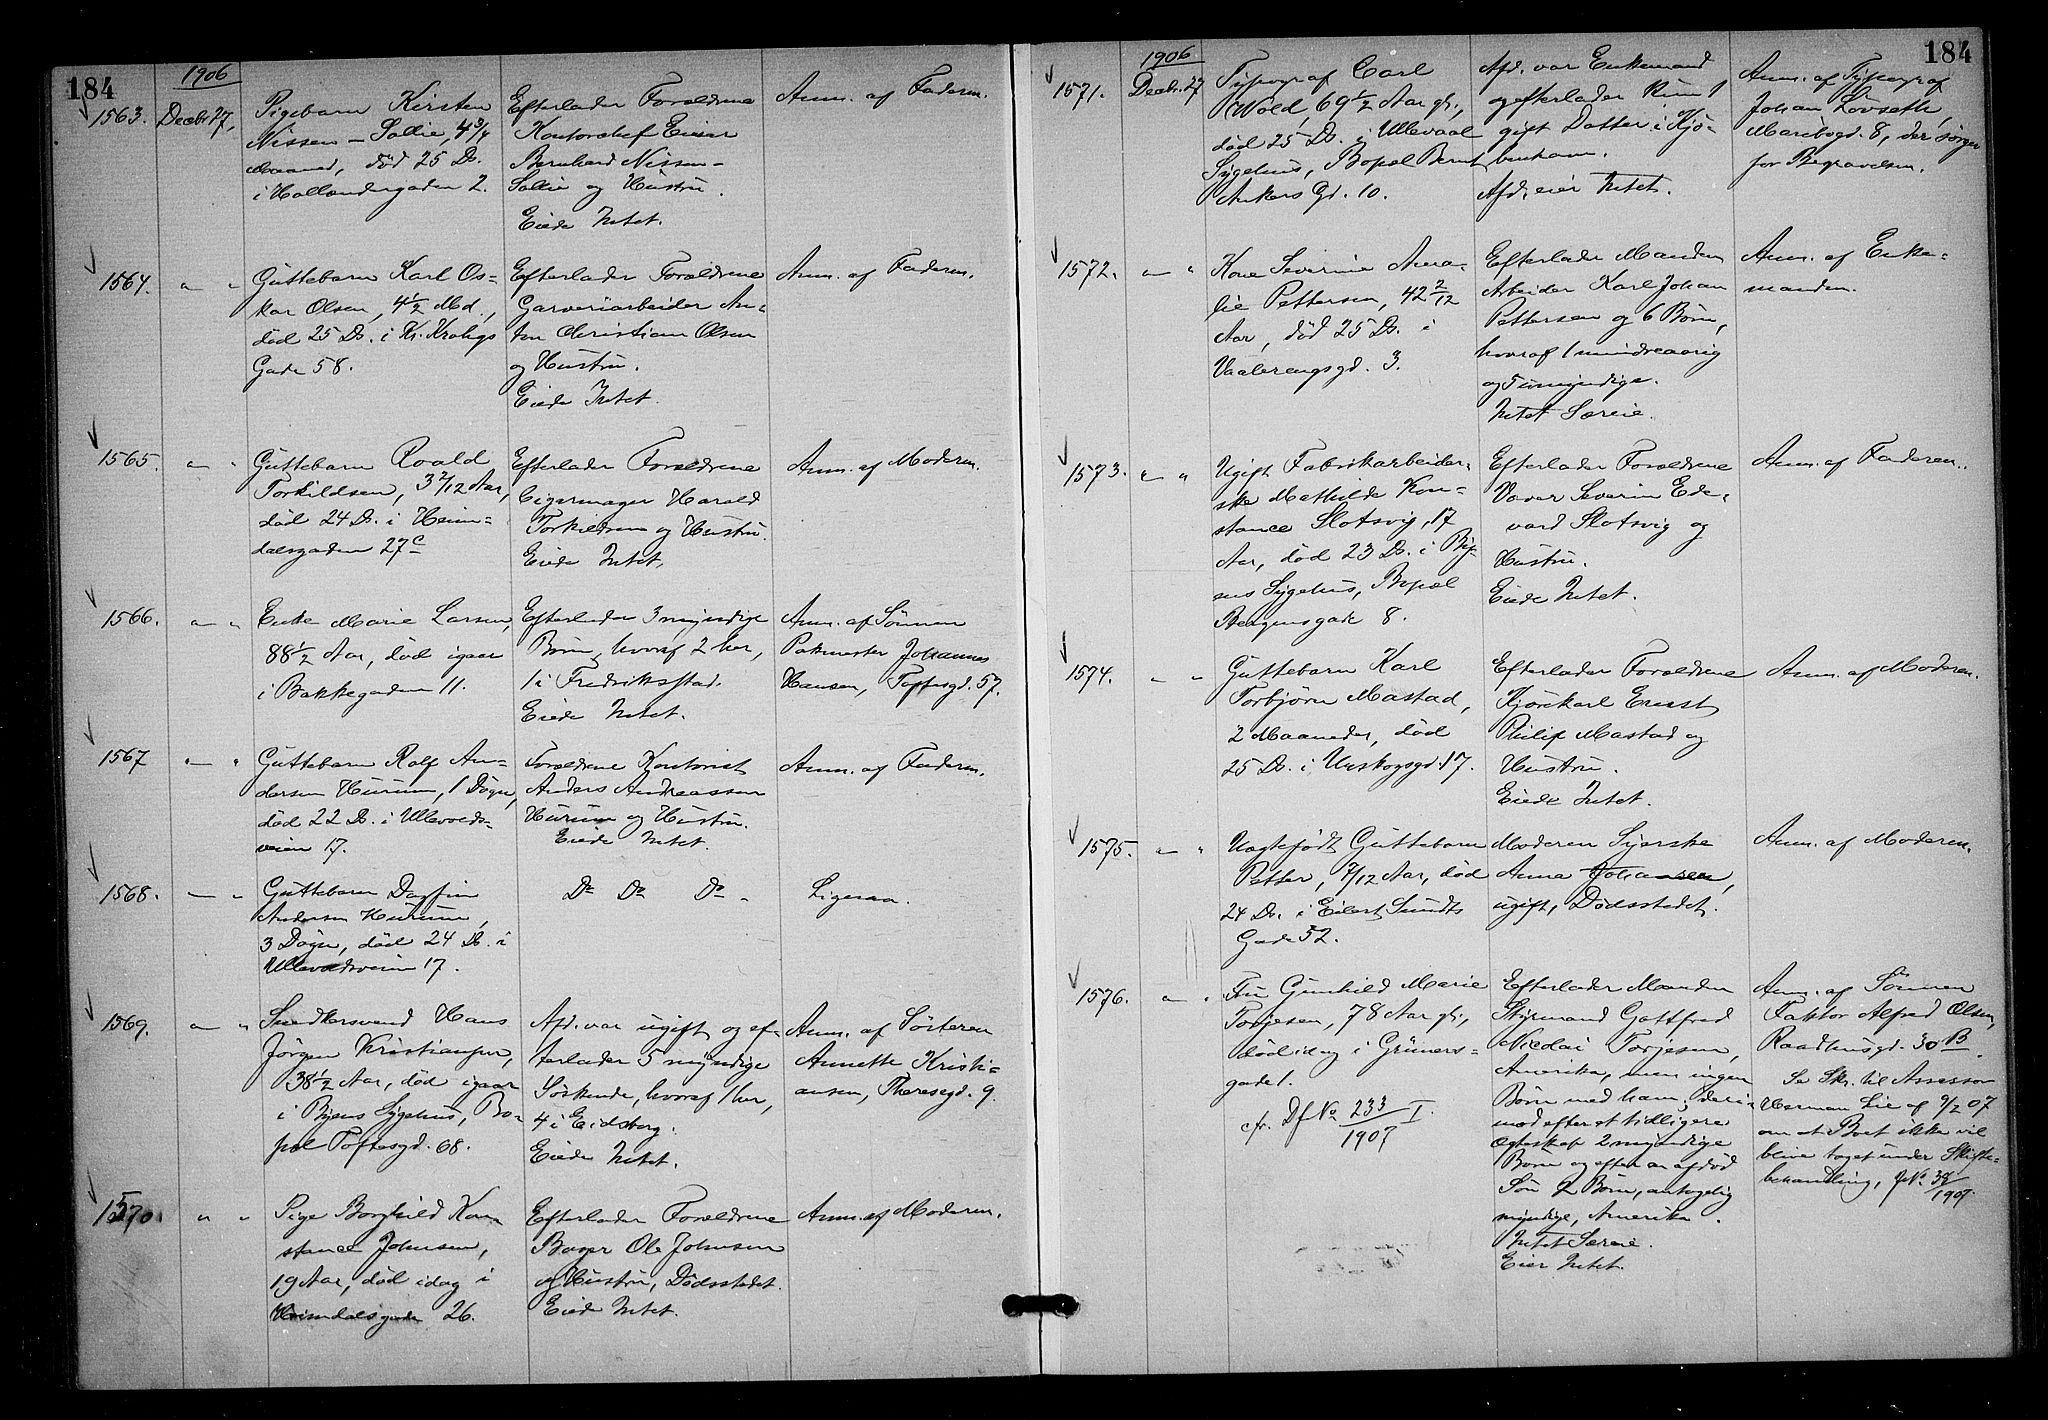 184
1906
1563. Decbr. 27,
Pigebarn Kirsten
Nissen-Sollie, 4 3/4
Maaned, död 25 Ds.
i Hollendergaden 2.
Efterlader Forældrene
Kontorchef Einar
Bernhard Nissen-
Sollie og Hustru.
Eiede Intet.
Anm. af Faderen.
1564. " "
Guttebarn Karl Os-
kar Olsen, 4 1/2 Md.,
död 25 Ds. i Kr. Krohgs
Gade 58.
Efterlader Forældrene
Garveriarbeider An-
ton Christian Olsen
og Hustru.
Eiede Intet.
Anm. af Faderen.
1565. " "
Guttebarn Roald
Torkildsen, 3 2/12 Aar,
död 24 Ds. i Heim-
dalsgaden 27c
Efterlader Forældrene
Cigarmager Harald
Torkildsen og Hustru.
Eiede Intet.
Anm. af Moderen.
1566. " "
Enke Marie Larsen,
88 1/2 Aar, död igaar
i Bakkegaden 11.
Efterlader 3 myndige
Børn, hvoraf 2 her,
1 i Fredriksstad.
Eiede Intet.
Anm. af Sönnen
Pakmester Johannes
Hansen, Toftesgd. 57.
1567 " "
Guttebarn Rolf An-
dersen Hurum, 1 Dögn,
död 22 Ds. i Ullevolds-
veien 17.
Forældrene Kontorist
Anders Andreassen
Hurum og Hustru.
Eiede Intet.
Anm. af Faderen.
1568. " "
Guttebarn Dagfin
Andersen Hurum,
3 Dögn, död 24 Ds. i
Ullevoldsveien 17.
Do Do Do "
Ligesaa.
1569. " "
Snedkersvend Hans
Jörgen Kristiansen,
38 1/2 Aar, död igaar
i Byens Sygehus, Bo-
pæl Toftesgd. 68.
Afd. var ugift og ef-
terlader 5 myndige
Söskende, hvoraf 1 her,
4 i Eidsberg.
Eiede Intet.
Anm. af Sösteren
Annette Kristi-
ansen, Theresegd. 9.
1570. " "
Pige Borghild Kon-
stance Johnsen,
19 Aar, död idag i
Heimdalsgaden 26.
Efterlader Forældrene
Bager Ole Johnsen
og Hustru, Dödsstedet.
Eiede Intet.
Anm. af Moderen.
184
1906
1571. Decbr. 27
Typograf Carl
Wold, 69 1/2 Aar gl.,
död 25 Ds. i Ullevaal
Sygehus, Bopæl Bernt
Ankers Gd. 10.
Afd. var Enkemand
og efterlader kun 1
gift Datter i Kjö-
benhavn.
Afd. eier Intet.
Anm. af Typograf
Johan Lövseth,
Maribogd. 8, der sörger
for Begravelsen.
1572. " "
Kone Severine Ama-
lie Pettersen, 42 2/12
Aar, död 25 Ds. i
Vaalerengsgd. 3.
Efterlader Manden
Arbeider Karl Johan
Pettersen og 6 Börn,
hvoraf 1 mindreaarig
og 5 umyndige.
Intet Særeie.
Anm. af Enke-
manden.
1573. " "
Ugift Fabrikarbeider-
ske Mathilde Kon-
stance Slotsvig, 17
Aar, död 23 Ds. i By-
ens Sygehus, Bopæl
Beegensgade 8.
Efterlader Forældrene
Væver Severin Ed-
vard Slotsvig og
Hustru.
Eiede Intet.
Anm. af Faderen.
1574. " "
Guttebarn Karl
Torbjörn Mastad,
2 Maaneder, död
25 Ds. i Urskogsgd. 17.
Efterlader Forældrene
Kjörekarl Ernst
Philip Mastad og
Hustru.
Eiede Intet.
Anm. af Moderen.
1575. " "
Uægtefödt Guttebarn
Petter, 7/12 Aar, död
24 Ds. i Eilert Sundts
Gade 52.
Moderen Syerske
Anna Johansen,
ugift, Dödsstedet.
Anm. af Moderen.
1576. " "
Fru Gunhild Marie
Torjesen, 78 Aar gl.,
död idag i Grüners-
gade 1.
cfr. Df No 233/1907 I.
Efterlader Manden
Styrmand Gottfred
Nicolai Torjesen,
Amerika, men ingen
Börn med ham, deri-
mod efter et tidligere
Ægteskab 2 myndige
Börn og efter en afdöd
Sön 2 Börn, antagelig
myndige, Amerika.
Intet Særeie.
Eier Intet.
Anm. af Sönnen
Faktor Alfred Olsen,
Raadhusgd. 30B.
Se Skr. til Assessor
Herman Lie af 9/2 07
om at Boet ikke vil
blive taget under Skifte-
behandling, J No 39/1907.